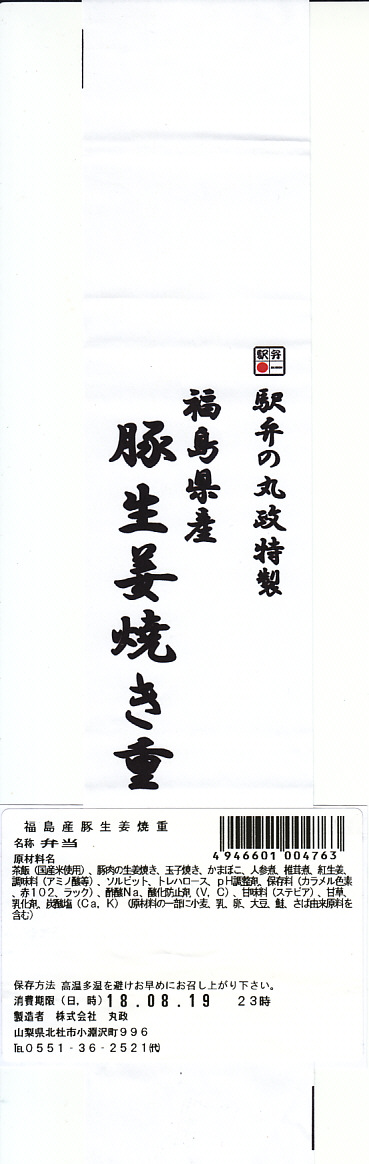 駅弁
駅弁の丸政特製
福島県産
豚生姜焼き重
福島産豚生姜焼重
名称 弁当
4946601 004763
原材料名
茶飯（国産米使用）、豚肉の生姜焼き、玉子焼き、かまぼこ、人参煮、椎茸煮、紅生姜、
調味料（アミノ酸等）、ソルビット、トレハロース、pH調整剤、保存料（カラメル色素
、赤102、ラック）、酢酸Na、酸化防止剤（V.C）、甘味料（ステビア）、甘草、
乳化剤、炭酸塩（Ca、K）（原材料の一部に小麦、乳、卵、大豆、鮭、さば由来原料を
含む）
保存方法 高温多湿を避けお早めにお召し上がり下さい。
消費期限（日，時）18.08.19 23時
製造者 株式会社 丸政
山梨県北杜市小淵沢町996
℡0551-36-2521㈹